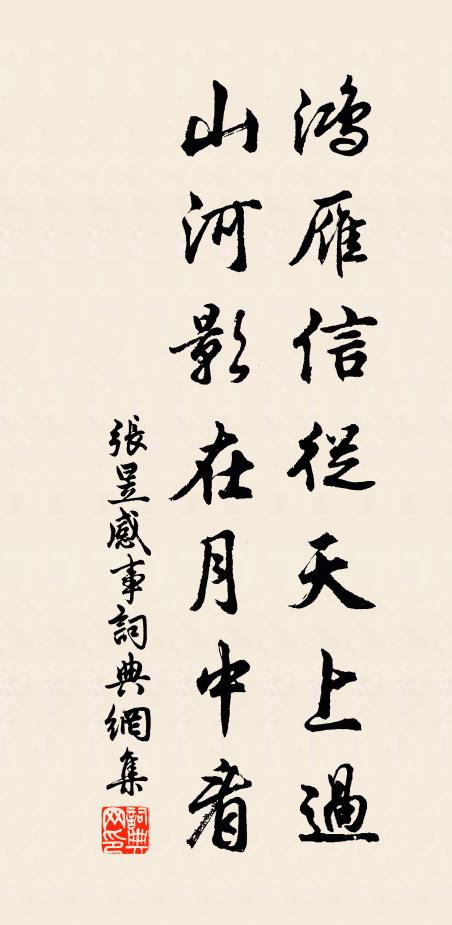 鴻雁信從天上過
山河影在月中看
張昱感事詞典網集
詞典网印